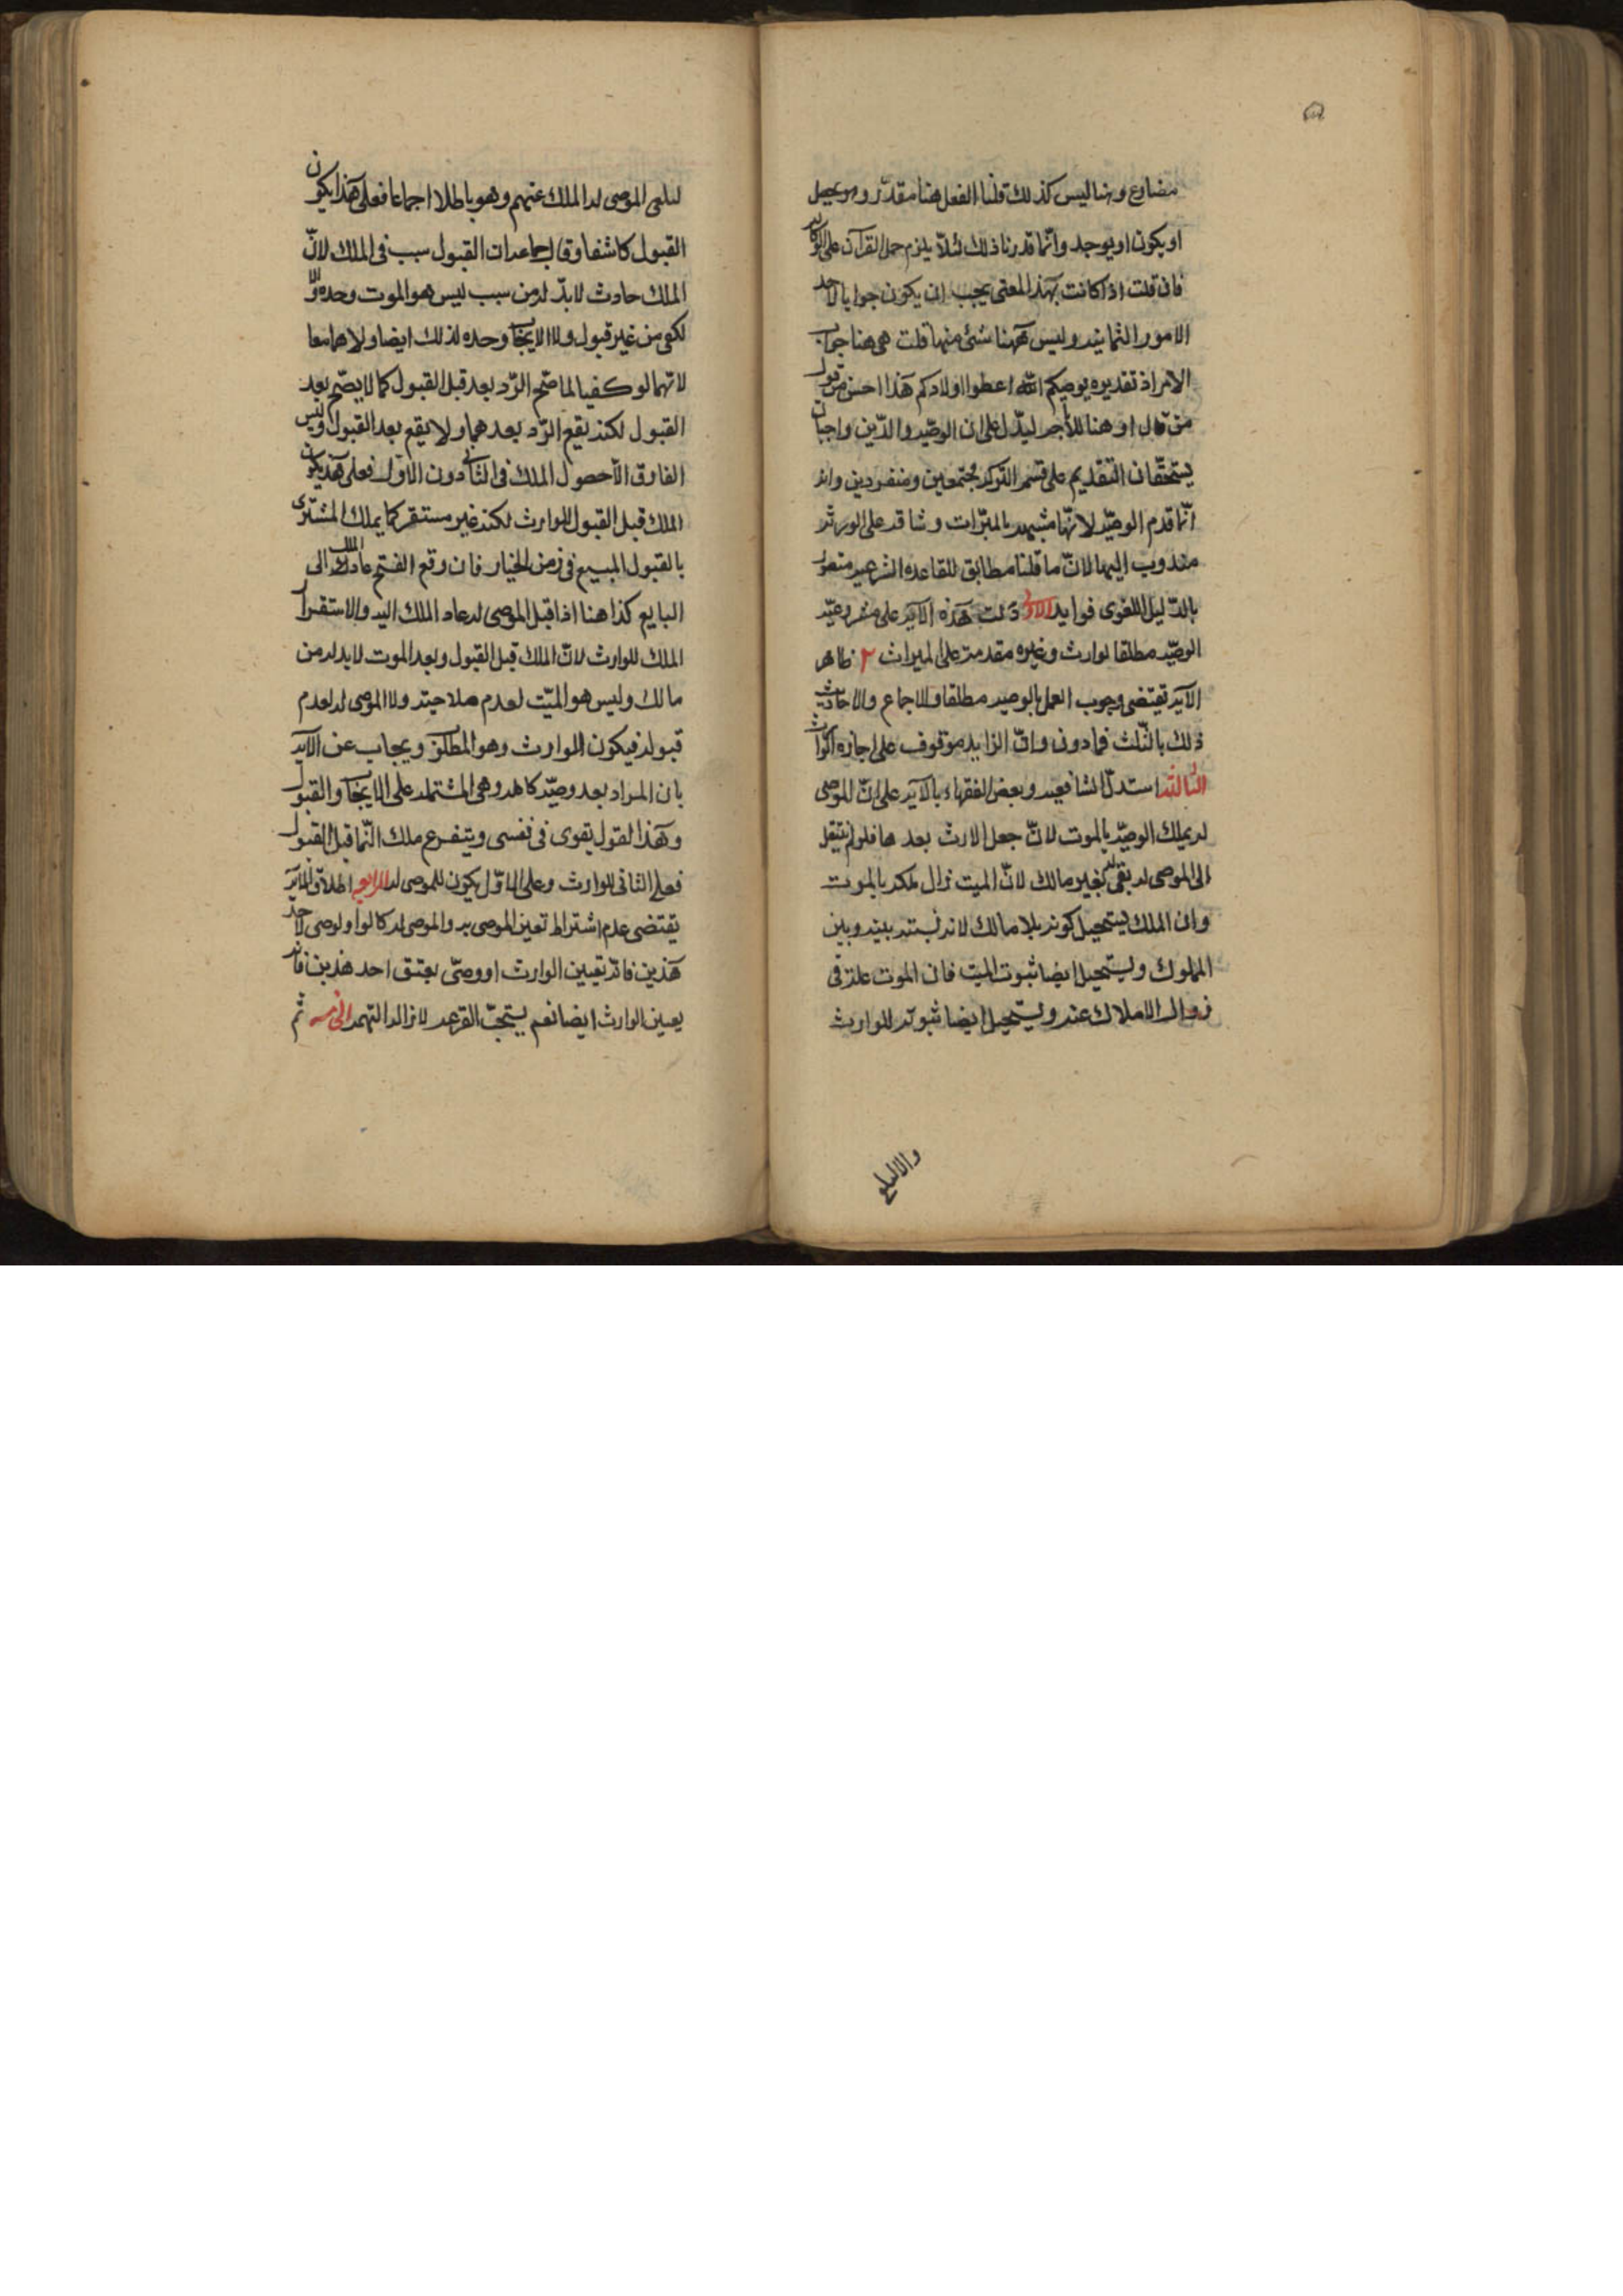 مضارع وهنا ليس كذلك قلنا الفعل هنا مقدّر وهو يجعل
او يكون او يوجد وانّما قدرنا ذلك لئلّا يلزم حمل القرآن على
فان قلت اذا كانت بهذا المعنى يجب ان يكون جوابا لاحد
الامور الثمانية وليس ههنا شئ منها قلت هي هنا جواب
الامر اذ تقديره يوصيكم الله اعطوا اولادكم هذا احسن من قول
من قال او هنا ليدّل على ان الوصيّة والدّين واجبان
يستحقّان التقديم على قسمة التركة مجتمعين ومنفردين وانه
انّما قدم الوصيّة لانّها مشبهة بالميراث وشاقة على الورثة
مندوب اليها لانّ ما قلنا مطابق للقاعدة الشرعية
بالدّليل اللغوى فوايد الاولى دلت هذه الآية على مشروعيّة
الوصيّة مطلقا لوارث وغيره مقدمة على الميراث ٢ ظاهر
الآية تقتضى وجوب العمل بالوصية مطلقا والاجماع والاحاديث
ذلك بالثّلث فما دون وانّ الزايد موقوف على اجازة الوارث
الثالثة استدلّ الشافعية وبعض الفقهاء بالآية على انّ الموصى
له يملك الوصيّة بالموت لانّ جعل الارث بعدها فلو لم ينتقل
الى الموصى له بقى بغير مالك لانّ الميت زال ملكه بالموت
وان الملك يستحيل كونه بلا مالك لانه نسبة بينه وبين
المملوك ويستحيل ايضا ثبوت الميت فان الموت علة في
زوال الاملاك عنه ويستحيل ايضا ثبوته للوارث
والا لتلقى
لتلقى الموصى له الملك عنهم وهو باطلا اجماعا فعلى هذا يكون
القبول كاشفا وقال جماعة ان القبول سبب فى الملك لانّ
الملك حادث لابدّ له من سبب ليس هو الموت وحده والّا
لكفى من غير قبول ولا الايجاب وحده لذلك ايضا ولا هما معا
لانّهما لو كفيا لما صحّ الرّد بعد قبل القبول كما لا يصّح بعد
القبول لكنه يقع الرّد بعدهما ولا يقع بعد القبول وليس
الفارق الّا حصول الملك فى الثانى دون الاوّل فعلى هذا يكون
الملك قبل القبول للوارث لكنه غير مستقر كما يملك المشترى
بالقبول المبيع فى زمن الخيار فان وقع الفسخ عاد الملك الى
البايع كذا هنا اذا قبل الموصى له عاد الملك اليه والاستقرار
الملك للوارث لانّ الملك قبل القبول وبعد الموت لابد له من
مالك وليس هو الميّت لعدم صلاحيته ولا الموصى له لعدم
قبوله فيكون للوارث وهو المطلق ويجاب عن الآية
بان المراد بعد وصيّة كاملة وهى المشتملة على الايجاب والقبول
وهذا القول يقوى فى نفسى ويتفرع ملك النّما قبل القبول
فعلى الثانى للوارث وعلى الاوّل يكون للموصى له الرابعة اطلاق الآية
يقتضى عدم اشتراط تعين الموصى به والموصى له كما لو اوصى لاحد
هذين فانّه تعيين الوارث او وصّى بعتق احد هذين فانه
يعين الوارث ايضا نعم يستحبّ القرعة لازالة التهمة الخامسة ثم